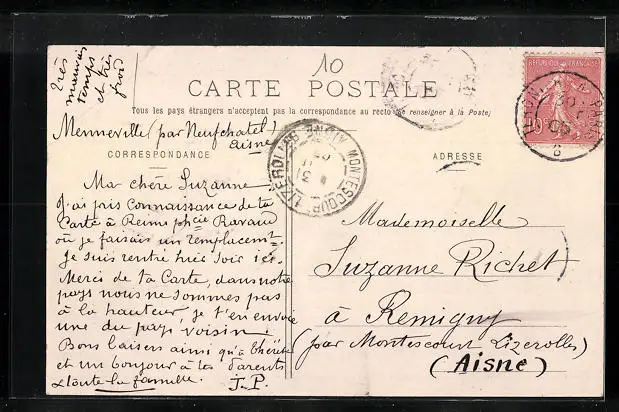 très
mauvais
temps
et très
froid
10
CARTE POSTALE
Tous les pays étrangers n'acceptent pas la correspondance au recto (se renseigner à la Poste)
Menneville (par Neufchatel)
Aisne
CORRESPONDANCE
ADRESSE
Ma chère Suzanne
J'ai pris connaissance de ta
Carte à Reims phcie Ravaud
où je faisais un remplacemt.
Je suis rentré hier soir ici.
Merci de ta Carte, dans notre
pays nous ne sommes pas
à la hauteur, je t'en envoie
une du pays voisin.
Bons baisers ainsi qu'à Thérèse
et un bonjour à tes Parents
& toute la famille.
J.P.
Mademoiselle
Suzanne Richet
à Remigny
(par Montescourt Lizerolles)
(Aisne)
REPUBLIQUE FRANÇAISE
10
MONTESCOURT-LIZEROLLES
AISNE